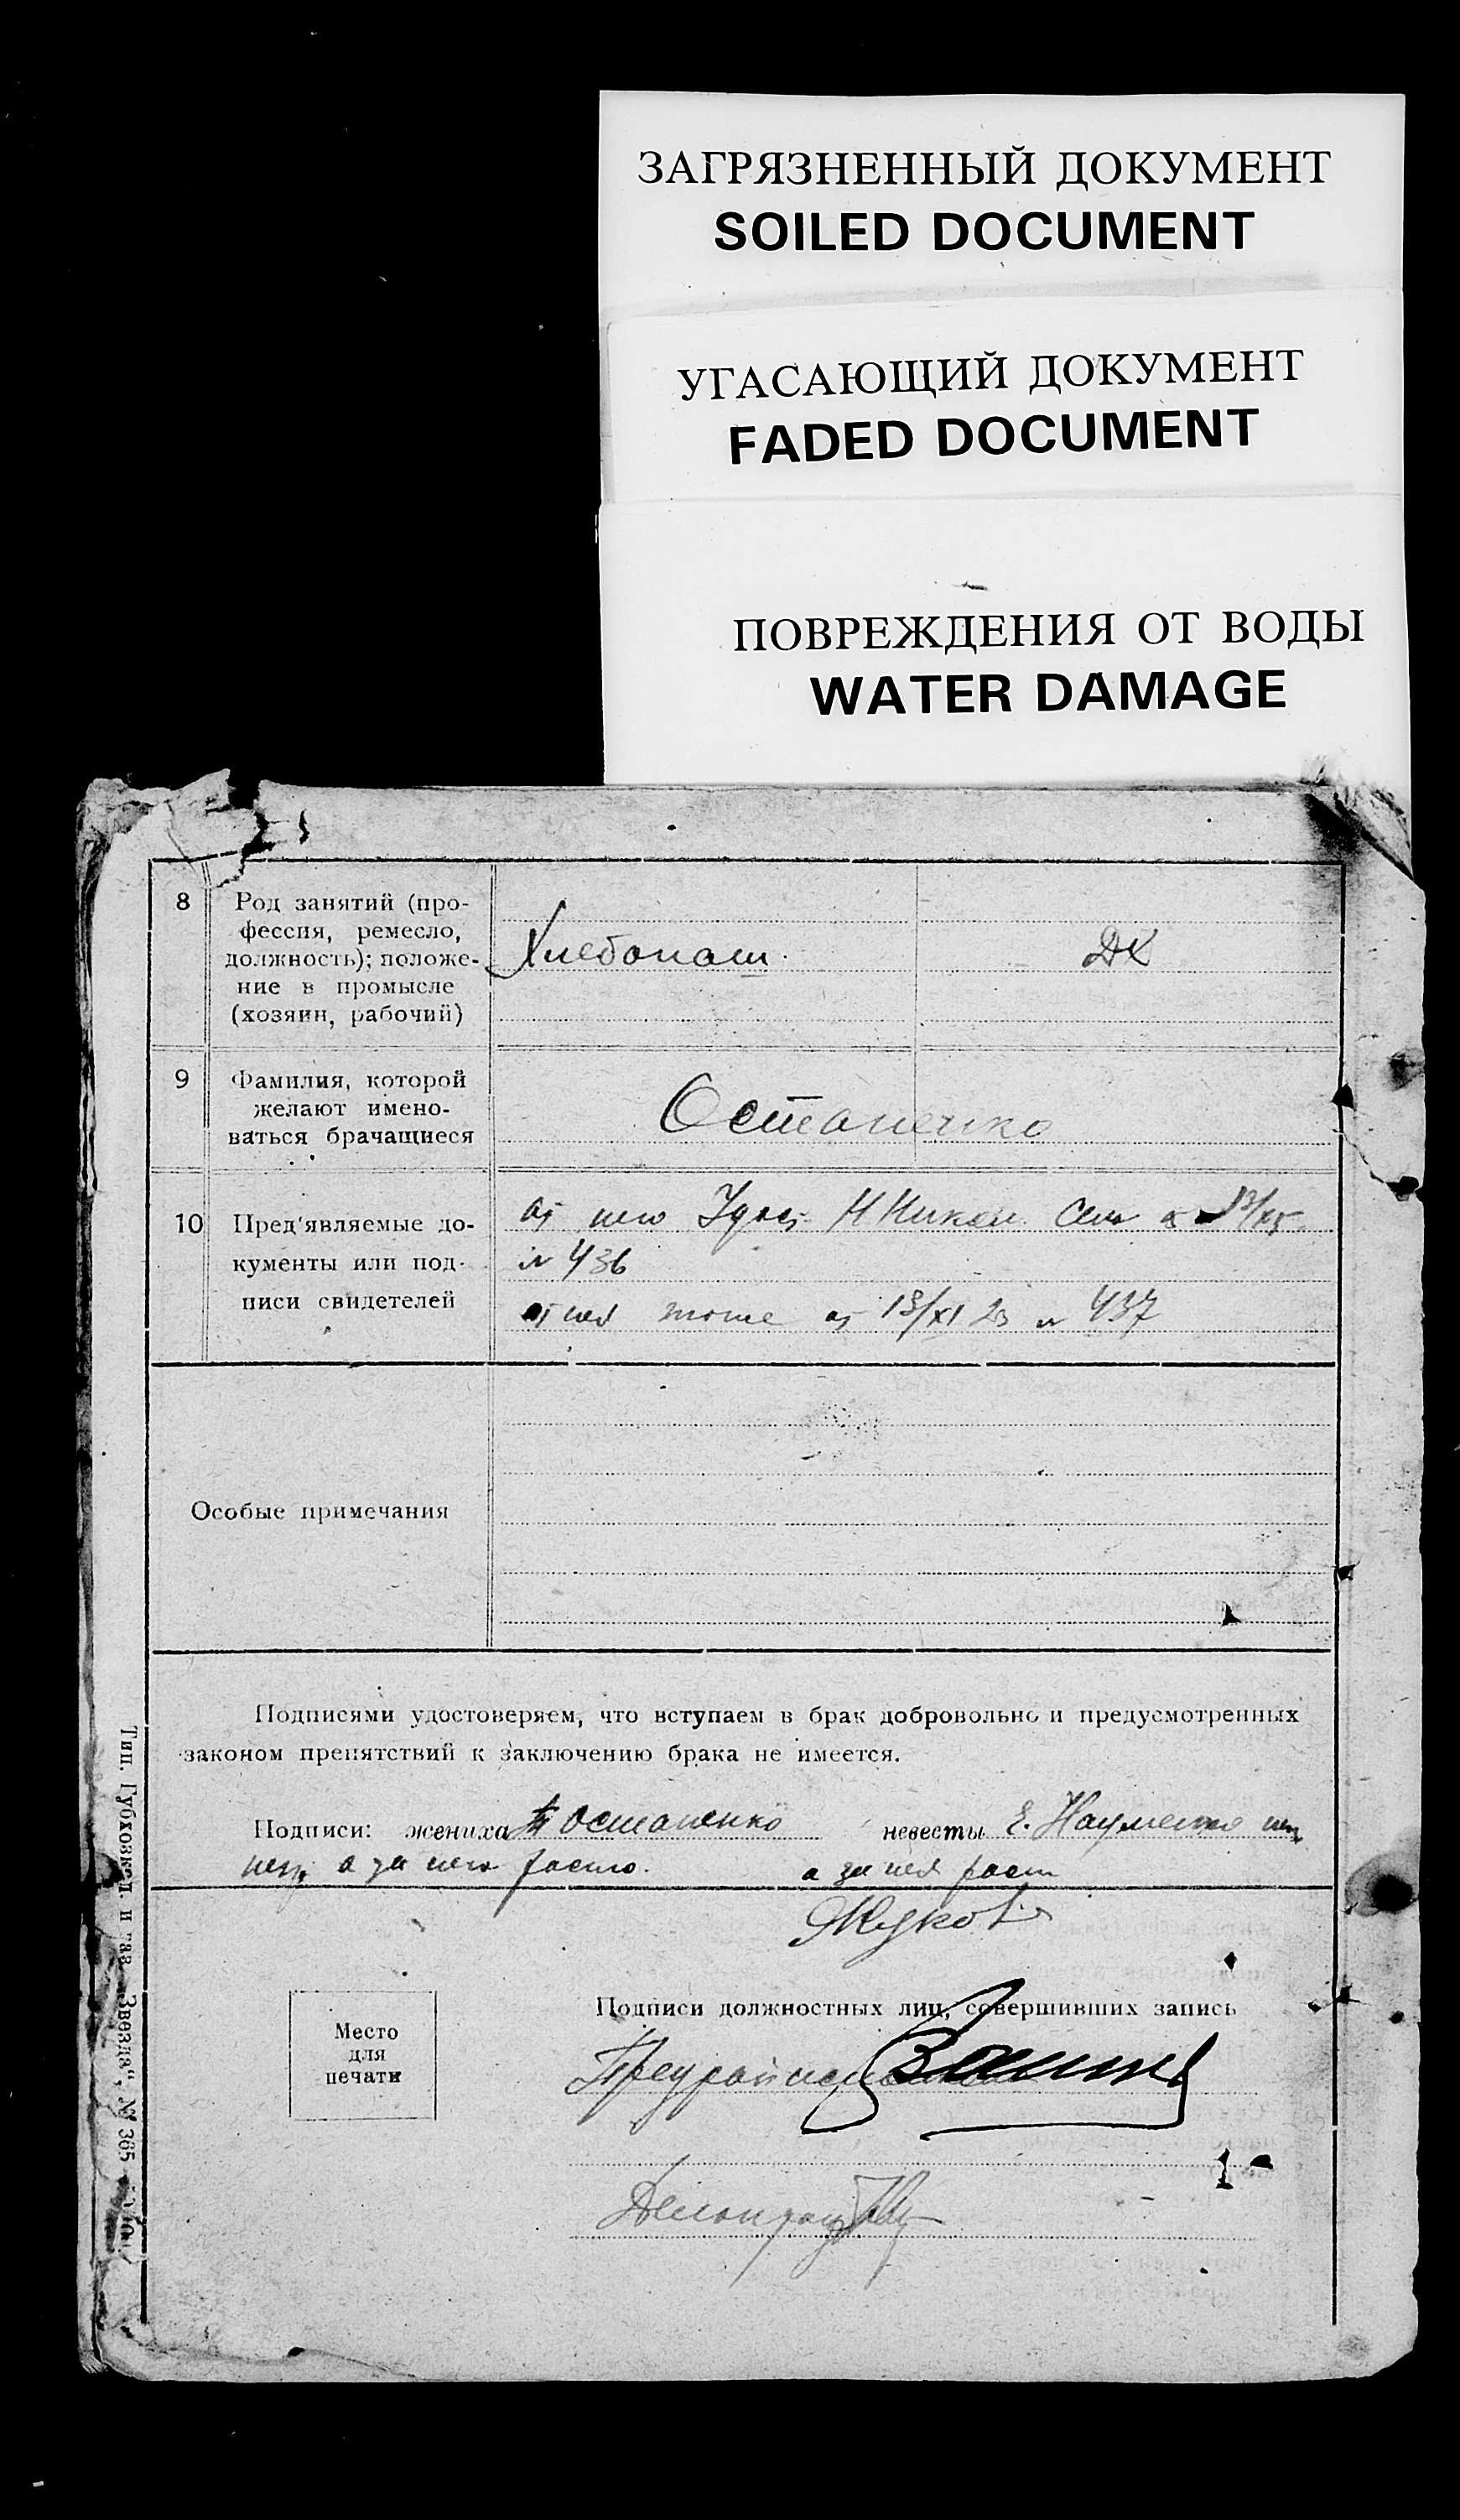 ЗАГРЯЗНЕННЫЙ ДОКУМЕНТ
SOILED DOCUMENT
УГАСАЮЩИЙ ДОКУМЕНТ
FADED DOCUMENT
ПОВРЕЖДЕНИЯ ОТ ВОДЫ
WATER DAMAGE
8
Род занятий (про-
фессия, ремесло,
должность); положе-
ние в промысле
(хозяин, рабочий)
Хлебопаш.
ДХ
9
Фамилия, которой
желают имено-
ваться брачащиеся
Остапенко
10
Пред'являемые до-
кументы или под-
писи свидетелей
от него Удост. Н Никол.
№ 436
от нея тоже от 13/XI 23 № 437
Особые примечания
Подписями удостоверяем, что вступаем в брак добровольно и предусмотренных
законом препятствий к заключению брака не имеется.
Подписи: жениха Остапенко невесты Е. Науменко
а за него а за нея
Жуков
Подписи должностных лиц, совершивших запись
Место
для
печати
Тип. Губхозкел. и газ. „Звезда", № 365